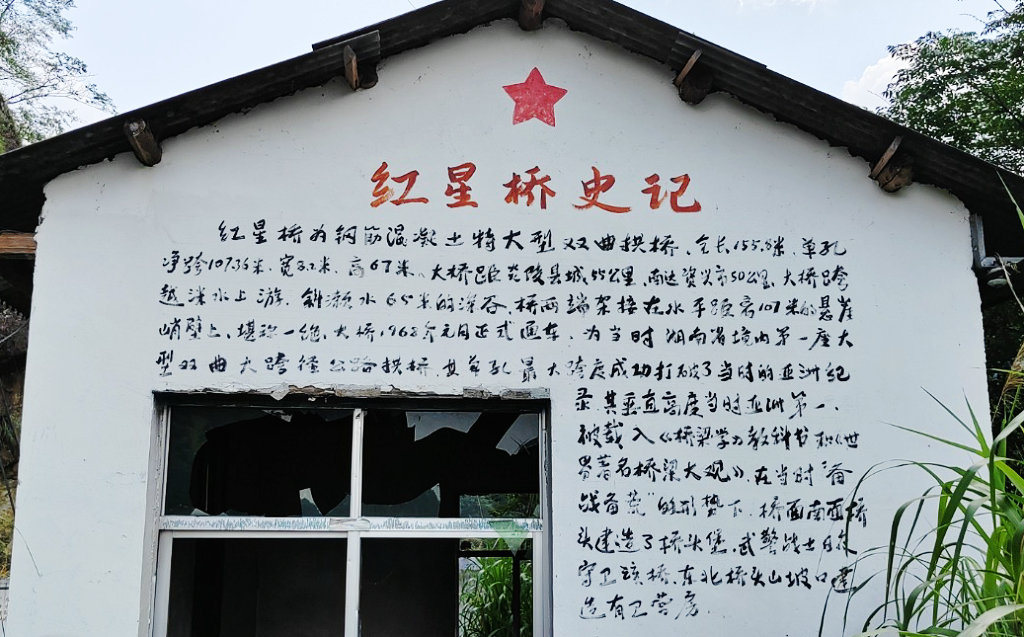 红星桥史记
红星桥为钢筋混凝土特大型双曲拱桥，全长155.8米，单孔
净跨107.36米，宽8.2米，高67米，大桥距炎陵县城45公里，南达资兴市50公里，大桥跨
越洣水上游，斜濑水65米的深谷，桥两端架接在水平距高107米的悬崖
峭壁上，堪称一绝，大桥1968年元月正式通车，为当时湖南省境内第一座大
型双曲大跨径公路拱桥，其单孔最大跨度成功打破了当时的亚洲纪
录，其垂直高度当时亚洲第一，
被载入《桥梁学》教科书和《世
界著名桥梁大观》，在当时“备
战备荒”的形势下，桥面南面桥
头建造了桥头堡，武警战士日夜
守卫该桥，东北桥头山坡口建
造有卫营房．